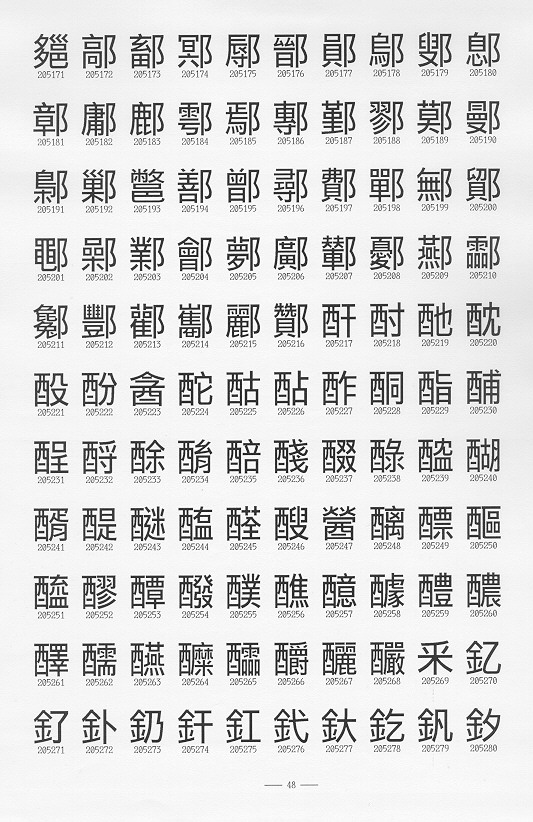 鄨 鄗 鄐 鄍 鄏 鄑 鄖 鄔 鄋 鄎
205171 205172 205173 205174 205175 205176 205177 205178 205179 205180
鄣 鄘 鄜 鄠 鄢 鄟 鄞 鄝 鄚 鄤
205181 205182 205183 205184 205185 205186 205187 205188 205189 205190
鄡 鄛 鄨 鄯 鄫 鄩 鄪 鄲 鄦 鄮
205191 205192 205193 205194 205195 205196 205197 205198 205199 205200
鄳 鄵 鄴 鄶 鄸 鄺 鄻 鄾 酀 酃
205201 205202 205203 205204 205205 205206 205207 205208 205209 205210
酆 酄 酅 酈 酇 酐 酎 酏 酖
205211 205212 205213 205214 205215 205216 205217 205218 205219 205220
酘 酚 酓 酡 酤 酟 酢 酮 酯 酺
205221 205222 205223 205224 205225 205226 205227 205228 205229 205230
酲 酹 酴 酳 醅 醆 醊 醁 醠 醐
205231 205232 205233 205234 205235 205236 205237 205238 205239 205240
醑 醍 醚 醢 醛 醙 醟 醨 醥 醧
205241 205242 205243 205244 205245 205246 205247 205248 205249 205250
醘 醪 醰 醱 醭 醮 醷 醵 醴 醲
205251 205252 205253 205254 205255 205256 205257 205258 205259 205260
醳 醹 醼 醾 醽 釂 釃 釅 釆 釔
205261 205262 205263 205264 205265 205266 205267 205268 205269 205270
釕 釙 釢 釬 釭 釴 釱 釳 釩 釸
205271 205272 205273 205274 205275 205276 205277 205278 205279 205280
48